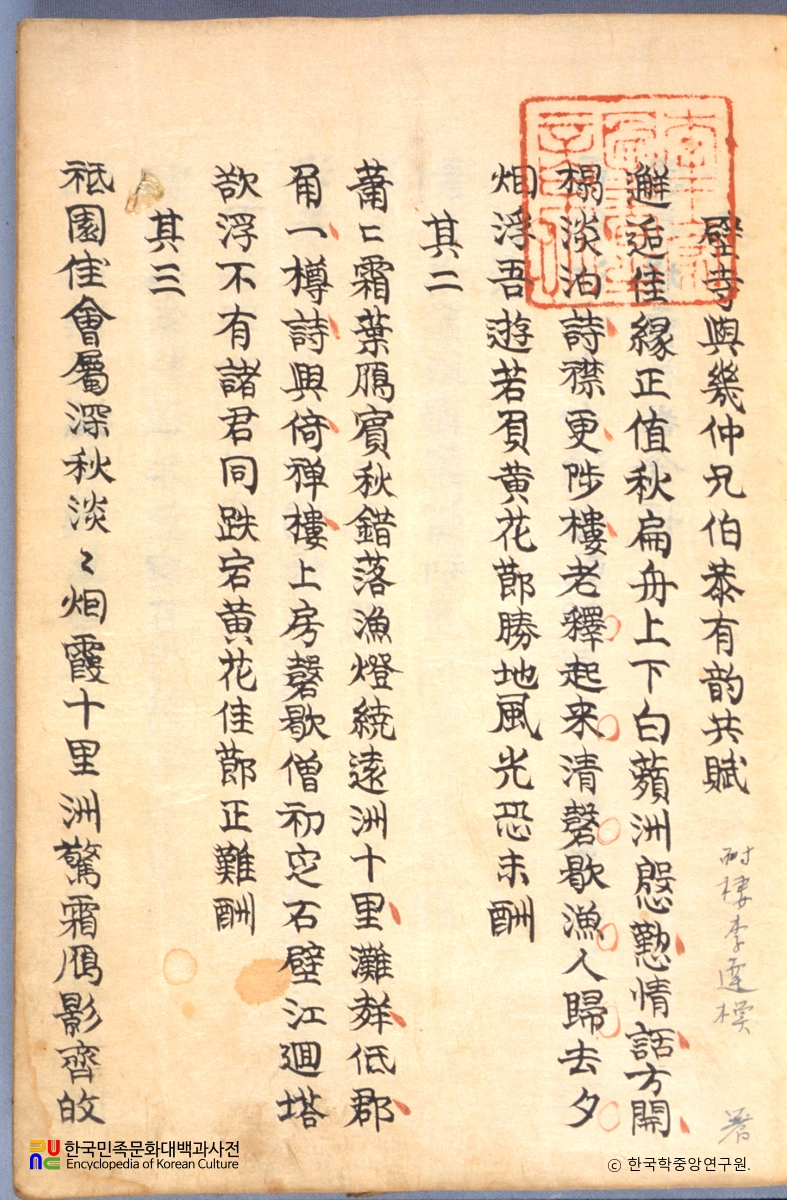 壁寺與幾仲兄伯恭有韵共賦
耐樓李達模 著
邂逅佳緣正值秋扁舟上下白蘋洲慇懃情話方開
榻淡泊詩襟更陟樓老釋起来清磬歇漁人歸去夕
烟浮吾遊若負黃花節勝地風光恐未酬
其二
蕭〻霜葉鴈賓秋錯落漁燈繞遠洲十里灘辥低郡
甭一樽詩興倚禅樓上房磬歇僧初㝎石壁江迴塔
欲浮不有諸君同跌宕黃花佳節正難酬
其三
祗園佳會屬深秋淡〻烟霞十里洲驚霜鴈影齊
한국민족문화대백과사전
Encyclopedia of Korean Culture
© 한국학중앙연구원.